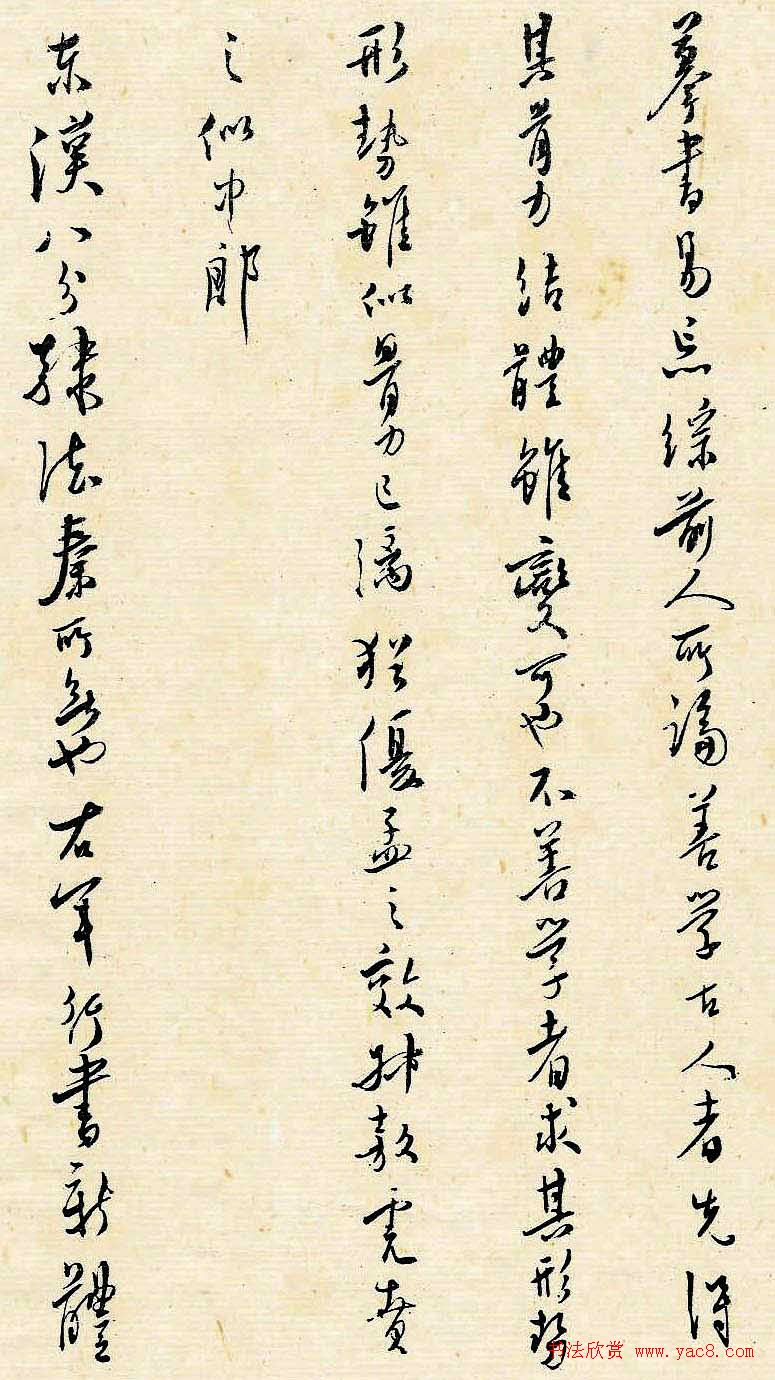 摹書易忘綜前人所論善學古人者先得
其骨力結體雖變可也不善學者求其形勢
形勢雖似骨力已漓猶優孟之效孫敖虎賁
之似中郎
東漢八分隸法秦所無也右軍行書新體
书法欣赏 www.yac8.com